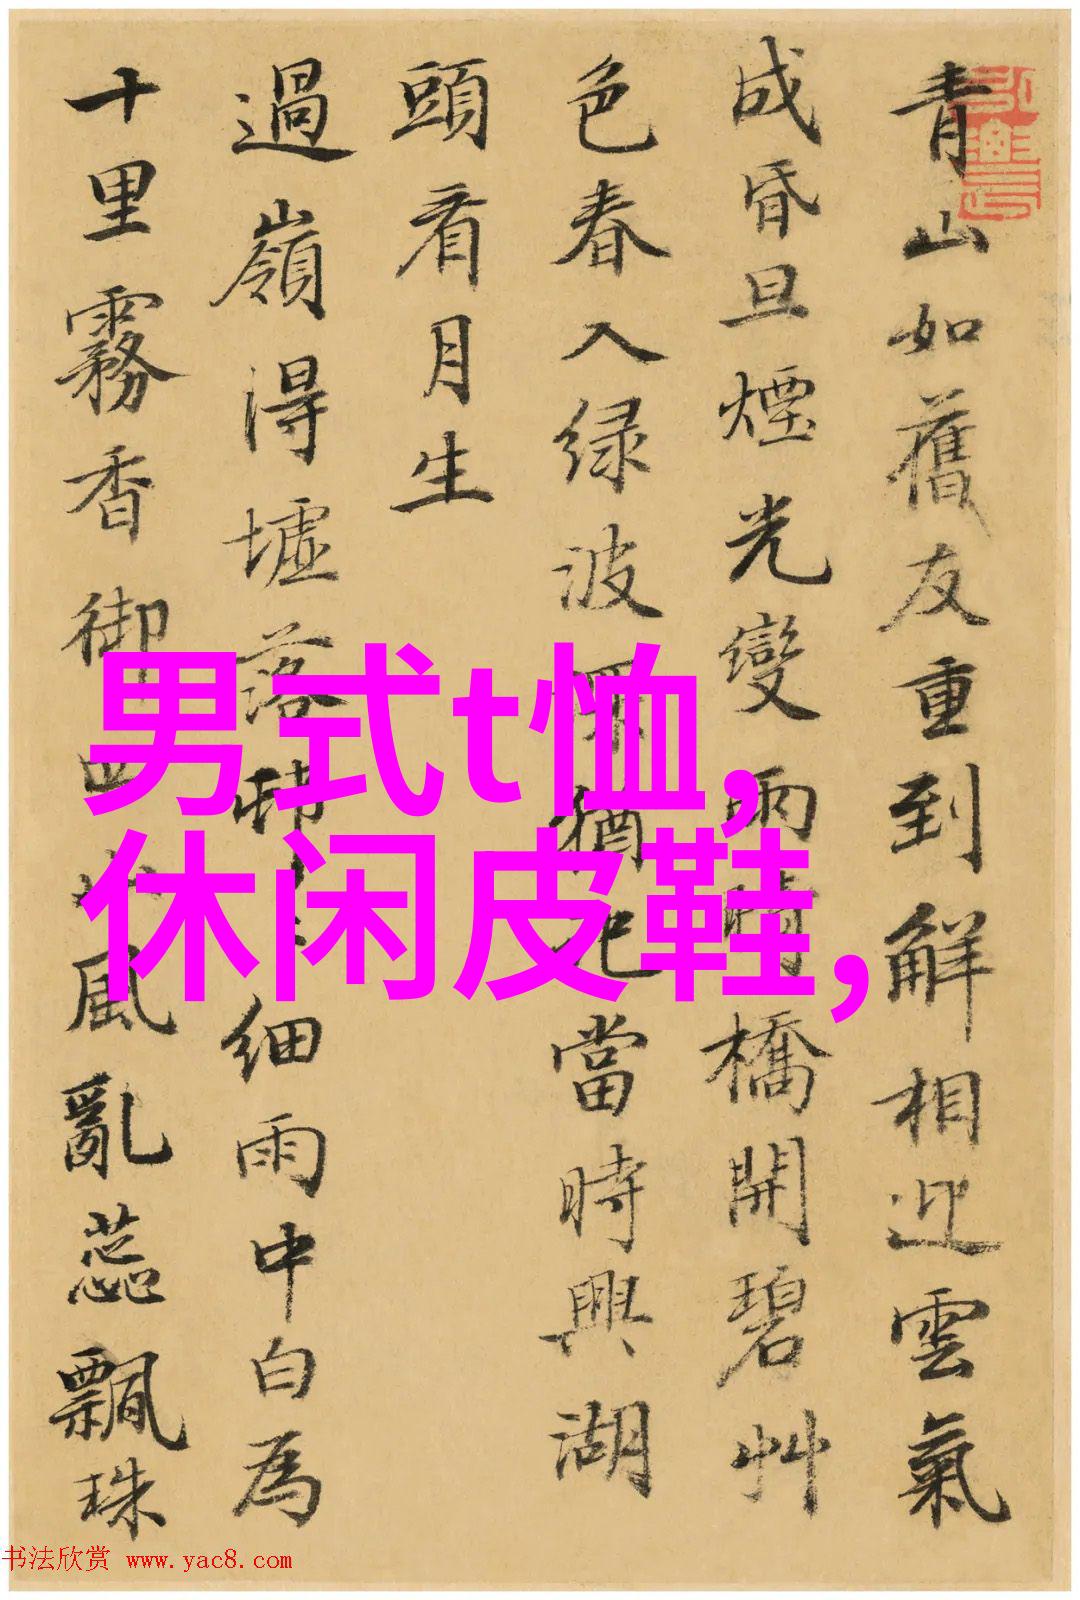 青山如舊友重到解相迎雲氣
成昏旦煙光變雨晴橋開碧艸
色春入绿波猶記當時興湖
頭看月生
過嶺得墟落細雨中白為
十里霧香御風亂蕊飄珠
男式t恤,
休闲皮鞋,
书法欣赏 www.yac8.com